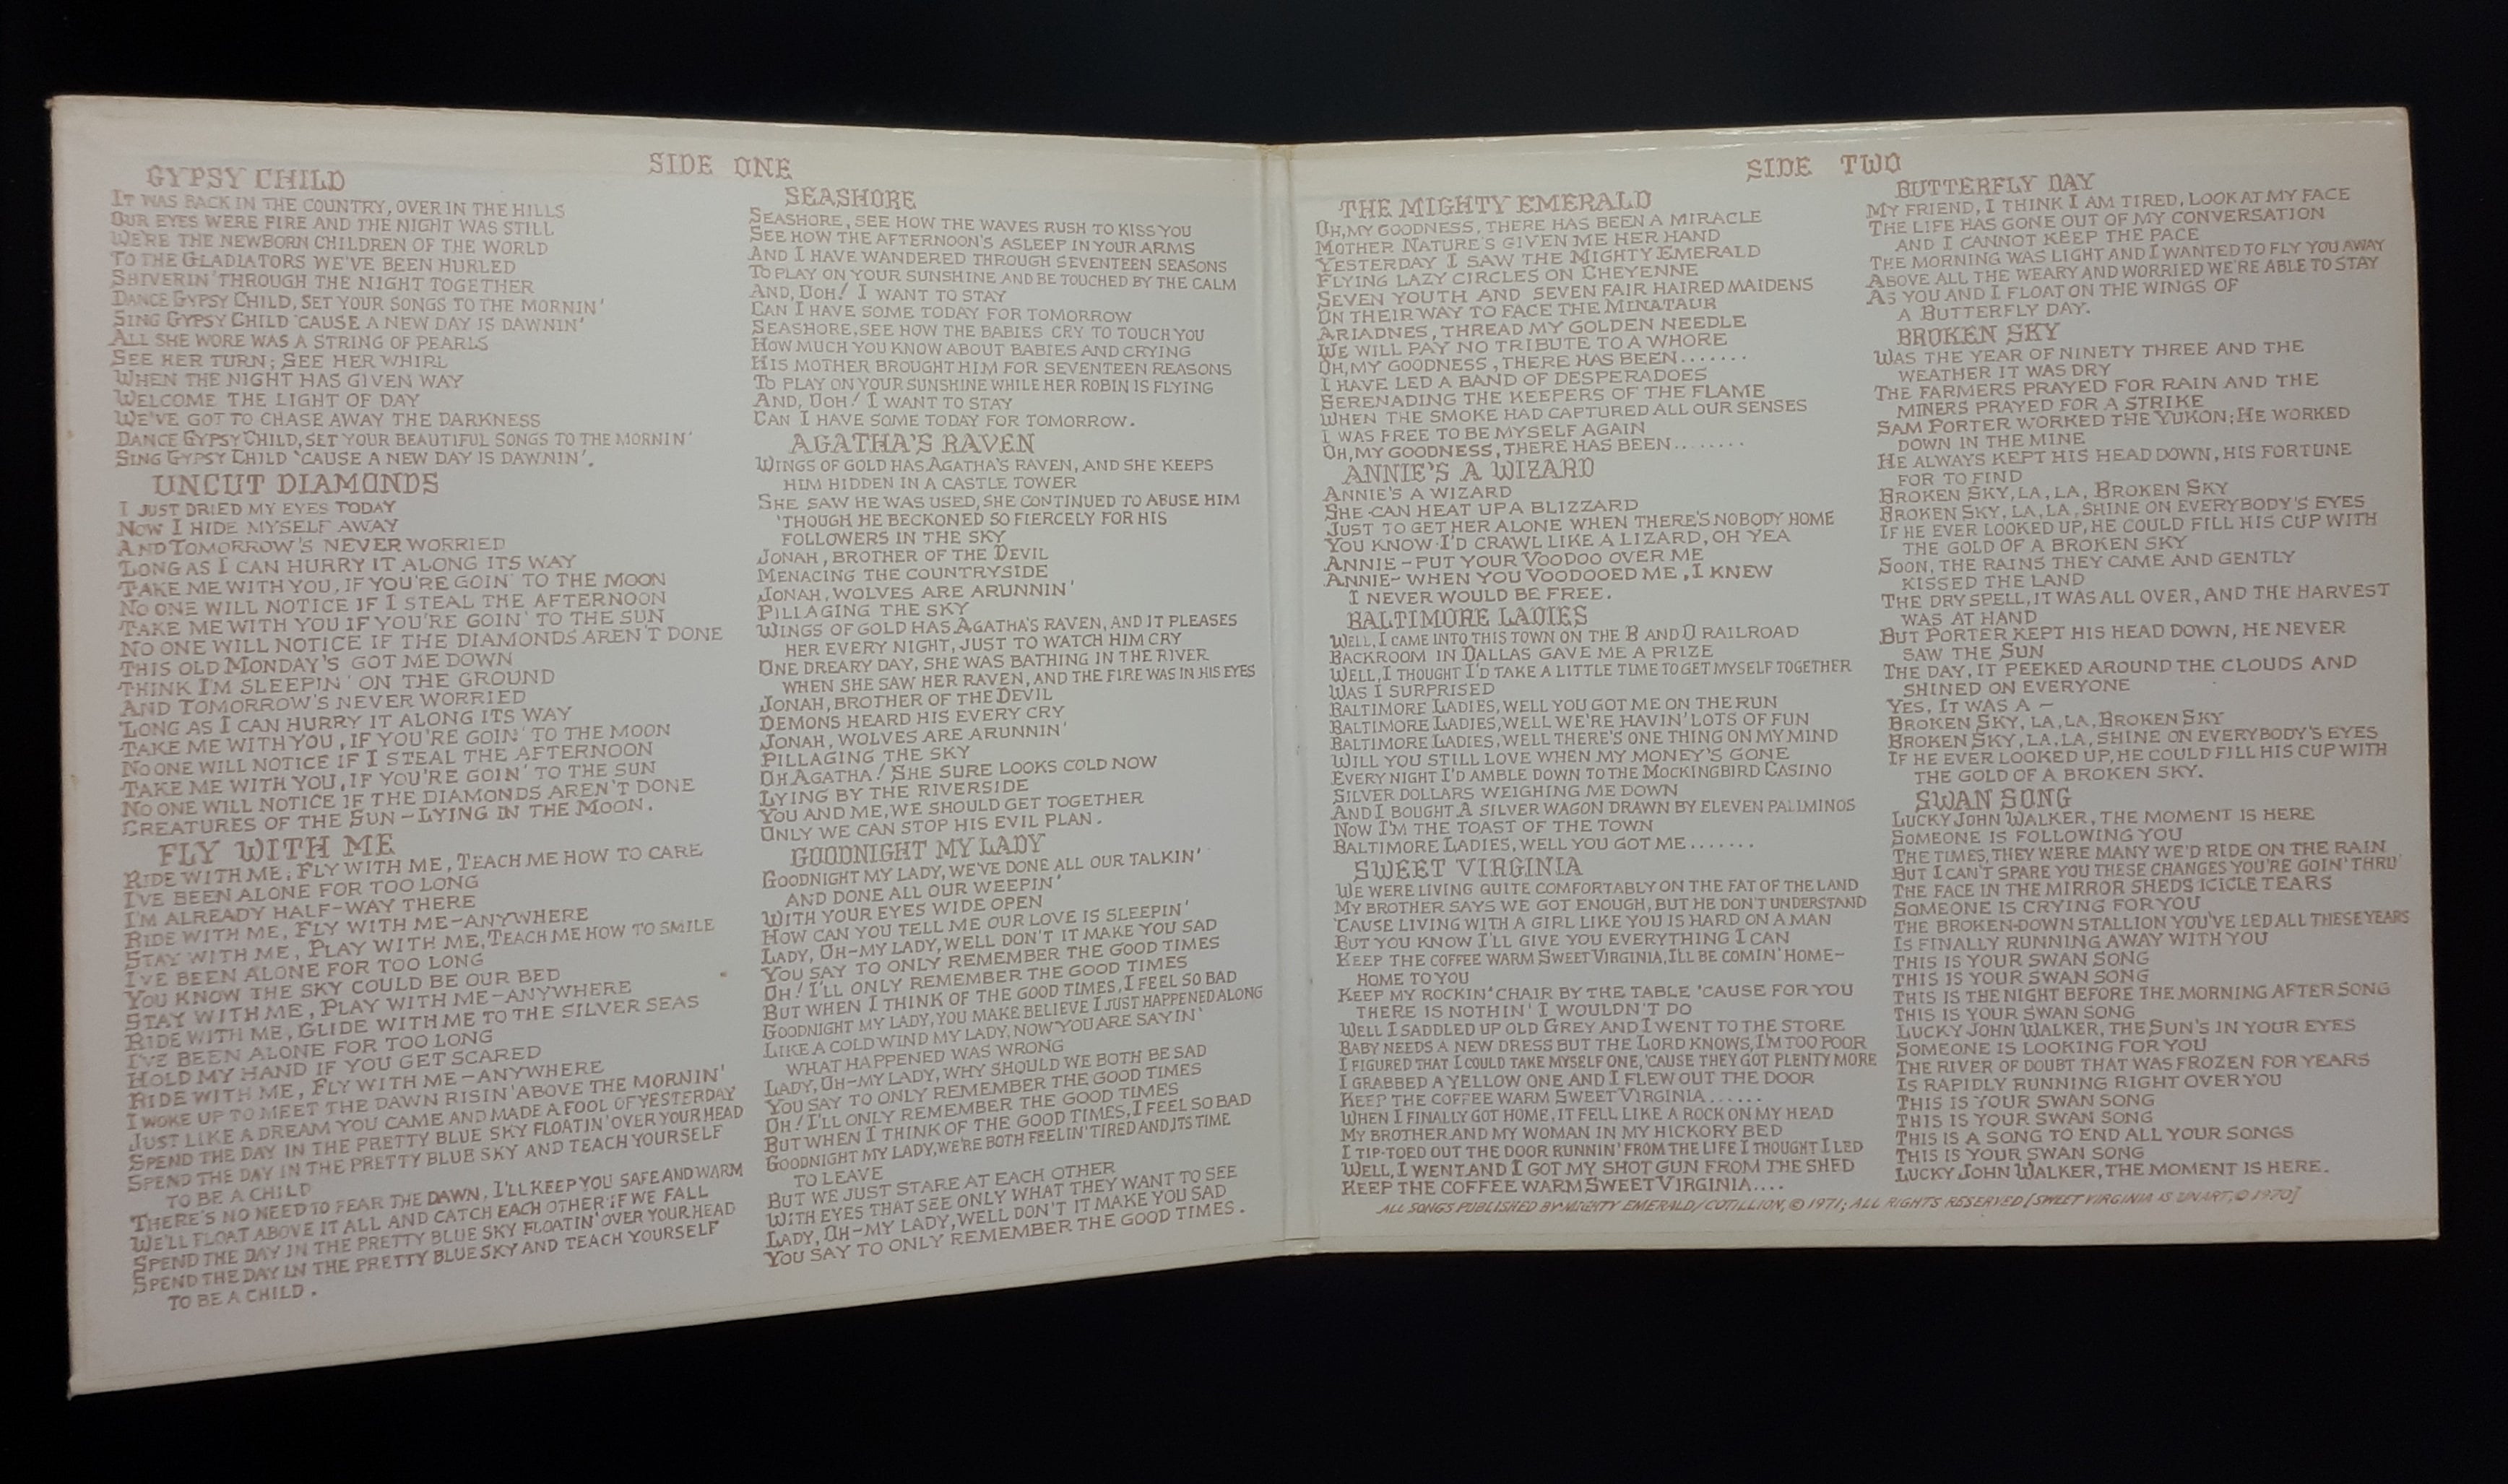 SIDE ONE
GYPSY CHILD
IT WAS BACK IN THE COUNTRY, OVER IN THE HILLS
OUR EYES WERE FIRE AND THE NIGHT WAS STILL
WE'RE THE NEWBORN CHILDREN OF THE WORLD
TO THE GLADIATORS WE'VE BEEN HURLED
SHIVERIN' THROUGH THE NIGHT TOGETHER
DANCE GYPSY CHILD, SET YOUR SONGS TO THE MORNIN'
SING GYPSY CHILD 'CAUSE A NEW DAY IS DAWNIN'
ALL SHE WORE WAS A STRING OF PEARLS
SEE HER TURN; SEE HER WHIRL
WHEN THE NIGHT HAS GIVEN WAY
WELCOME THE LIGHT OF DAY
WE'VE GOT TO CHASE AWAY THE DARKNESS
DANCE GYPSY CHILD, SET YOUR BEAUTIFUL SONGS TO THE MORNIN'
SING GYPSY CHILD 'CAUSE A NEW DAY IS DAWNIN'.
UNCUT DIAMONDS
I JUST DRIED MY EYES TODAY
NOW I HIDE MYSELF AWAY
AND TOMORROW'S NEVER WORRIED
'LONG AS I CAN HURRY IT ALONG ITS WAY
TAKE ME WITH YOU, IF YOU'RE GOIN' TO THE MOON
NO ONE WILL NOTICE IF I STEAL THE AFTERNOON
TAKE ME WITH YOU IF YOU'RE GOIN' TO THE SUN
NO ONE WILL NOTICE IF THE DIAMONDS AREN'T DONE
THIS OLD MONDAY'S GOT ME DOWN
THINK I'M SLEEPIN' ON THE GROUND
AND TOMORROW'S NEVER WORRIED
'LONG AS I CAN HURRY IT ALONG ITS WAY
TAKE ME WITH YOU, IF YOU'RE GOIN' TO THE MOON
NO ONE WILL NOTICE IF I STEAL THE AFTERNOON
TAKE ME WITH YOU, IF YOU'RE GOIN' TO THE SUN
NO ONE WILL NOTICE IF THE DIAMONDS AREN'T DONE
CREATURES OF THE SUN - LYING IN THE MOON.
FLY WITH ME
RIDE WITH ME, FLY WITH ME, TEACH ME HOW TO CARE
I'VE BEEN ALONE FOR TOO LONG
I'M ALREADY HALF-WAY THERE
RIDE WITH ME, FLY WITH ME - ANYWHERE
STAY WITH ME, PLAY WITH ME, TEACH ME HOW TO SMILE
I'VE BEEN ALONE FOR TOO LONG
YOU KNOW THE SKY COULD BE OUR BED
STAY WITH ME, PLAY WITH ME - ANYWHERE
RIDE WITH ME, GLIDE WITH ME TO THE SILVER SEAS
I'VE BEEN ALONE FOR TOO LONG
HOLD MY HAND IF YOU GET SCARED
RIDE WITH ME, FLY WITH ME - ANYWHERE
I WOKE UP TO MEET THE DAWN RISIN' ABOVE THE MORNIN'
JUST LIKE A DREAM YOU CAME AND MADE A FOOL OF YESTERDAY
SPEND THE DAY IN THE PRETTY BLUE SKY FLOATIN' OVER YOUR HEAD
SPEND THE DAY IN THE PRETTY BLUE SKY AND TEACH YOURSELF
TO BE A CHILD
THERE'S NO NEED TO FEAR THE DAWN, I'LL KEEP YOU SAFE AND WARM
WE'LL FLOAT ABOVE IT ALL AND CATCH EACH OTHER IF WE FALL
SPEND THE DAY IN THE PRETTY BLUE SKY FLOATIN' OVER YOUR HEAD
SPEND THE DAY IN THE PRETTY BLUE SKY AND TEACH YOURSELF
TO BE A CHILD.
SEASHORE
SEASHORE, SEE HOW THE WAVES RUSH TO KISS YOU
SEE HOW THE AFTERNOON'S ASLEEP IN YOUR ARMS
AND I HAVE WANDERED THROUGH SEVENTEEN SEASONS
TO PLAY ON YOUR SUNSHINE AND BE TOUCHED BY THE CALM
AND, OOH! I WANT TO STAY
CAN I HAVE SOME TODAY FOR TOMORROW
SEASHORE, SEE HOW THE BABIES CRY TO TOUCH YOU
HOW MUCH YOU KNOW ABOUT BABIES AND CRYING
HIS MOTHER BROUGHT HIM FOR SEVENTEEN REASONS
TO PLAY ON YOUR SUNSHINE WHILE HER ROBIN IS FLYING
AND, OOH! I WANT TO STAY
CAN I HAVE SOME TODAY FOR TOMORROW.
AGATHA'S RAVEN
WINGS OF GOLD HAS AGATHA'S RAVEN, AND SHE KEEPS
HIM HIDDEN IN A CASTLE TOWER
SHE SAW HE WAS USED, SHE CONTINUED TO ABUSE HIM
'THOUGH HE BECKONED SO FIERCELY FOR HIS
FOLLOWERS IN THE SKY
JONAH, BROTHER OF THE DEVIL
MENACING THE COUNTRYSIDE
JONAH, WOLVES ARE ARUNNIN'
PILLAGING THE SKY
WINGS OF GOLD HAS AGATHA'S RAVEN, AND IT PLEASES
HER EVERY NIGHT, JUST TO WATCH HIM CRY
ONE DREARY DAY, SHE WAS BATHING IN THE RIVER
WHEN SHE SAW HER RAVEN, AND THE FIRE WAS IN HIS EYES
JONAH, BROTHER OF THE DEVIL
DEMONS HEARD HIS EVERY CRY
JONAH, WOLVES ARE ARUNNIN'
PILLAGING THE SKY
OH AGATHA! SHE SURE LOOKS COLD NOW
LYING BY THE RIVERSIDE
YOU AND ME, WE SHOULD GET TOGETHER
ONLY WE CAN STOP HIS EVIL PLAN.
GOODNIGHT MY LADY
GOODNIGHT MY LADY, WE'VE DONE ALL OUR TALKIN'
AND DONE ALL OUR WEEPIN'
WITH YOUR EYES WIDE OPEN
HOW CAN YOU TELL ME OUR LOVE IS SLEEPIN'
LADY, OH-MY LADY, WELL DON'T IT MAKE YOU SAD
YOU SAY TO ONLY REMEMBER THE GOOD TIMES
OH! I'LL ONLY REMEMBER THE GOOD TIMES
BUT WHEN I THINK OF THE GOOD TIMES, I FEEL SO BAD
GOODNIGHT MY LADY, YOU MAKE BELIEVE I JUST HAPPENED ALONG
LIKE A COLD WIND MY LADY, NOW YOU ARE SAYIN'
WHAT HAPPENED WAS WRONG
LADY, OH-MY LADY, WHY SHOULD WE BOTH BE SAD
YOU SAY TO ONLY REMEMBER THE GOOD TIMES
OH! I'LL ONLY REMEMBER THE GOOD TIMES
BUT WHEN I THINK OF THE GOOD TIMES, I FEEL SO BAD
GOODNIGHT MY LADY, WE'RE BOTH FEELIN' TIRED AND ITS TIME
TO LEAVE
BUT WE JUST STARE AT EACH OTHER
WITH EYES THAT SEE ONLY WHAT THEY WANT TO SEE
LADY, OH-MY LADY, WELL DON'T IT MAKE YOU SAD
YOU SAY TO ONLY REMEMBER THE GOOD TIMES.
SIDE TWO
THE MIGHTY EMERALD
OH, MY GOODNESS, THERE HAS BEEN A MIRACLE
MOTHER NATURE'S GIVEN ME HER HAND
YESTERDAY I SAW THE MIGHTY EMERALD
FLYING LAZY CIRCLES ON CHEYENNE
SEVEN YOUTH AND SEVEN FAIR HAIRED MAIDENS
ON THEIR WAY TO FACE THE MINATAUR
ARIADNES, THREAD MY GOLDEN NEEDLE
WE WILL PAY NO TRIBUTE TO A WHORE
OH, MY GOODNESS, THERE HAS BEEN.......
I HAVE LED A BAND OF DESPERADOES
SERENADING THE KEEPERS OF THE FLAME
WHEN THE SMOKE HAD CAPTURED ALL OUR SENSES
I WAS FREE TO BE MYSELF AGAIN
OH, MY GOODNESS, THERE HAS BEEN........
ANNIE'S A WIZARD
ANNIE'S A WIZARD
SHE CAN HEAT UP A BLIZZARD
JUST TO GET HER ALONE WHEN THERE'S NOBODY HOME
YOU KNOW I'D CRAWL LIKE A LIZARD, OH YEA
ANNIE - PUT YOUR VOODOO OVER ME
ANNIE - WHEN YOU VOODOOED ME, I KNEW
I NEVER WOULD BE FREE.
BALTIMORE LADIES
WELL, I CAME INTO THIS TOWN ON THE B AND O RAILROAD
BACKROOM IN DALLAS GAVE ME A PRIZE
WELL, I THOUGHT I'D TAKE A LITTLE TIME TO GET MYSELF TOGETHER
WAS I SURPRISED
BALTIMORE LADIES, WELL YOU GOT ME ON THE RUN
BALTIMORE LADIES, WELL WE'RE HAVIN' LOTS OF FUN
BALTIMORE LADIES, WELL THERE'S ONE THING ON MY MIND
WILL YOU STILL LOVE WHEN MY MONEY'S GONE
EVERY NIGHT I'D AMBLE DOWN TO THE MOCKINGBIRD CASINO
SILVER DOLLARS WEIGHING ME DOWN
AND I BOUGHT A SILVER WAGON DRAWN BY ELEVEN PALIMINOS
NOW I'M THE TOAST OF THE TOWN
BALTIMORE LADIES, WELL YOU GOT ME.......
SWEET VIRGINIA
WE WERE LIVING QUITE COMFORTABLY ON THE FAT OF THE LAND
MY BROTHER SAYS WE GOT ENOUGH, BUT HE DON'T UNDERSTAND
'CAUSE LIVING WITH A GIRL LIKE YOU IS HARD ON A MAN
BUT YOU KNOW I'LL GIVE YOU EVERYTHING I CAN
KEEP THE COFFEE WARM SWEET VIRGINIA, I'LL BE COMIN' HOME-
HOME TO YOU
KEEP MY ROCKIN' CHAIR BY THE TABLE 'CAUSE FOR YOU
THERE IS NOTHIN' I WOULDN'T DO
WELL I SADDLED UP OLD GREY AND I WENT TO THE STORE
BABY NEEDS A NEW DRESS BUT THE LORD KNOWS, I'M TOO POOR
I FIGURED THAT I COULD TAKE MYSELF ONE, 'CAUSE THEY GOT PLENTY MORE
I GRABBED A YELLOW ONE AND I FLEW OUT THE DOOR
KEEP THE COFFEE WARM SWEET VIRGINIA......
WHEN I FINALLY GOT HOME, IT FELL LIKE A ROCK ON MY HEAD
MY BROTHER AND MY WOMAN IN MY HICKORY BED
I TIP-TOED OUT THE DOOR RUNNIN' FROM THE LIFE I THOUGHT I LED
WELL, I WENT AND I GOT MY SHOT GUN FROM THE SHED
KEEP THE COFFEE WARM SWEET VIRGINIA....
BUTTERFLY DAY
MY FRIEND, I THINK I AM TIRED, LOOK AT MY FACE
THE LIFE HAS GONE OUT OF MY CONVERSATION
AND I CANNOT KEEP THE PACE
THE MORNING WAS LIGHT AND I WANTED TO FLY YOU AWAY
ABOVE ALL THE WEARY AND WORRIED WE'RE ABLE TO STAY
AS YOU AND I FLOAT ON THE WINGS OF
A BUTTERFLY DAY.
BROKEN SKY
WAS THE YEAR OF NINETY THREE AND THE
WEATHER IT WAS DRY
THE FARMERS PRAYED FOR RAIN AND THE
MINERS PRAYED FOR A STRIKE
SAM PORTER WORKED THE YUKON; HE WORKED
DOWN IN THE MINE
HE ALWAYS KEPT HIS HEAD DOWN, HIS FORTUNE
FOR TO FIND
BROKEN SKY, LA, LA, BROKEN SKY
BROKEN SKY, LA, LA, SHINE ON EVERYBODY'S EYES
IF HE EVER LOOKED UP, HE COULD FILL HIS CUP WITH
THE GOLD OF A BROKEN SKY
SOON, THE RAINS THEY CAME AND GENTLY
KISSED THE LAND
THE DRY SPELL, IT WAS ALL OVER, AND THE HARVEST
WAS AT HAND
BUT PORTER KEPT HIS HEAD DOWN, HE NEVER
SAW THE SUN
THE DAY, IT PEEKED AROUND THE CLOUDS AND
SHINED ON EVERYONE
YES, IT WAS A -
BROKEN SKY, LA, LA, BROKEN SKY
BROKEN SKY, LA, LA, SHINE ON EVERYBODY'S EYES
IF HE EVER LOOKED UP, HE COULD FILL HIS CUP WITH
THE GOLD OF A BROKEN SKY.
SWAN SONG
LUCKY JOHN WALKER, THE MOMENT IS HERE
SOMEONE IS FOLLOWING YOU
THE TIMES, THEY WERE MANY WE'D RIDE ON THE RAIN
BUT I CAN'T SPARE YOU THESE CHANGES YOU'RE GOIN' THRU'
THE FACE IN THE MIRROR SHEDS ICICLE TEARS
SOMEONE IS CRYING FOR YOU
THE BROKEN-DOWN STALLION YOU'VE LED ALL THESE YEARS
IS FINALLY RUNNING AWAY WITH YOU
THIS IS YOUR SWAN SONG
THIS IS YOUR SWAN SONG
THIS IS THE NIGHT BEFORE THE MORNING AFTER SONG
THIS IS YOUR SWAN SONG
LUCKY JOHN WALKER, THE SUN'S IN YOUR EYES
SOMEONE IS LOOKING FOR YOU
THE RIVER OF DOUBT THAT WAS FROZEN FOR YEARS
IS RAPIDLY RUNNING RIGHT OVER YOU
THIS IS YOUR SWAN SONG
THIS IS YOUR SWAN SONG
THIS IS A SONG TO END ALL YOUR SONGS
THIS IS YOUR SWAN SONG
LUCKY JOHN WALKER, THE MOMENT IS HERE.
ALL SONGS PUBLISHED BY MIGHTY EMERALD/COTILLION, © 1971; ALL RIGHTS RESERVED [SWEET VIRGINIA IS UNART, © 1970]